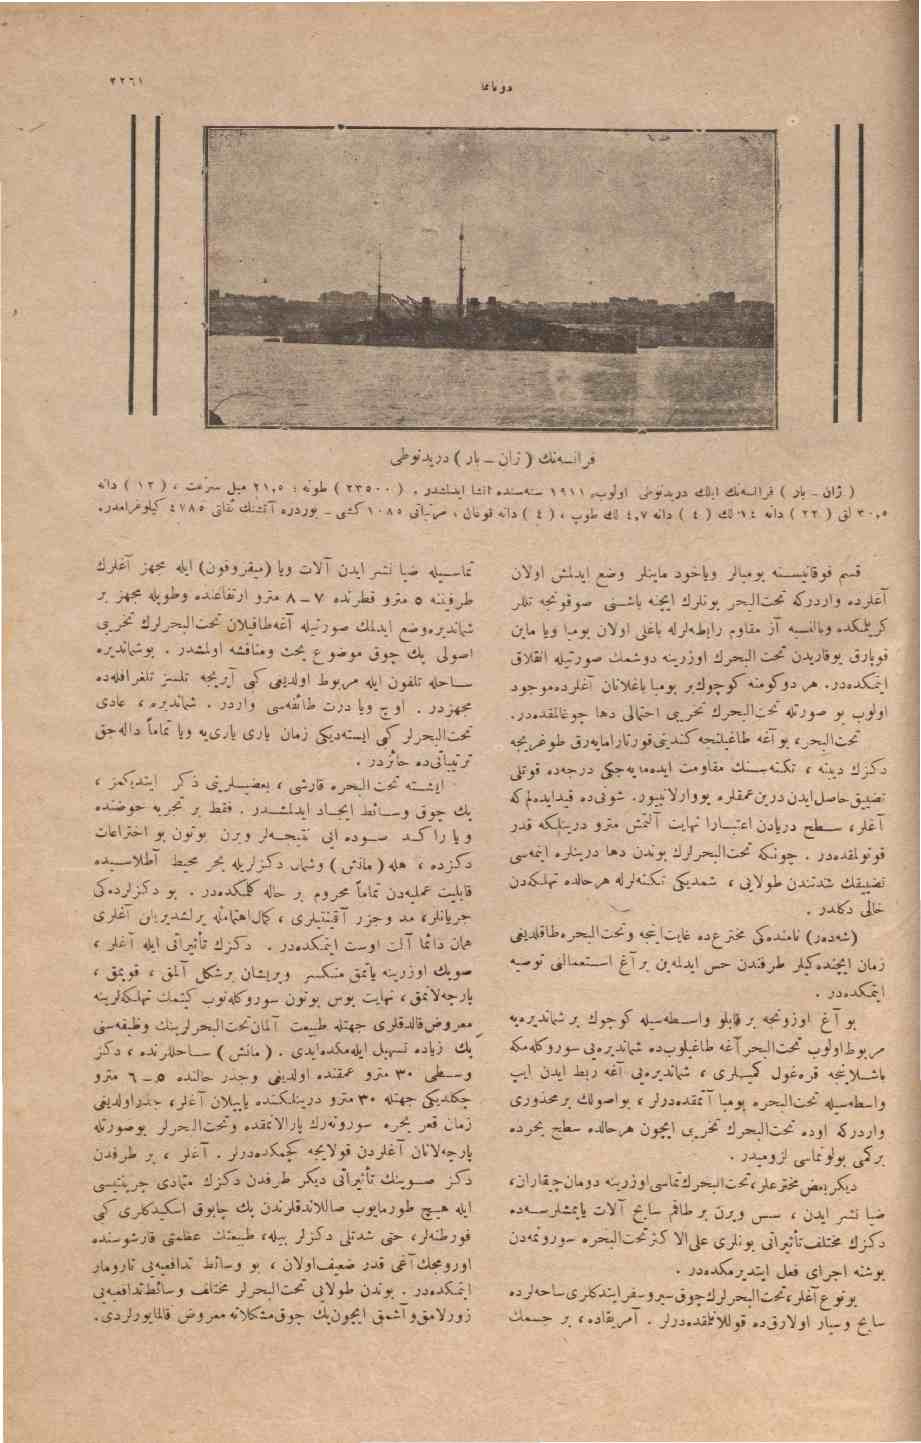 دونانما
٣٢٦١
فرانسه‌نك ( ژان ــ بار ) دریدنوطی
( ژان ــ بار ) فرانسه‌نك ایلك دریدنوطی اولوب، ١٩١١ سنه‌سنده انشا ایدلمشدر . ( ٢٣٥٠٠ ) طونه ؛ ٢١،٥ میل سرعت ، ( ١٢ ) دانه
٣٠،٥ لق ( ٢٢ ) دانه ١٤ لك ( ٤ ) دانه ٤،٧ لك طوپ ، ( ٤ ) دانه قوغان ، مرتباتی ١٠٨٥ كشی ــ بوردره آتشنك ثقلتی ٤٧٨٥ كیلوغرامدر.
قسم فوقانیسنه بومبالر ویاخود ماینلر وضع ایدلمش اولان
آغلرده واردركه تحت‌البحر بونلرك ایچنه باشنی صوقونجه تللر
كریلمكده وبالنسبه آز مقاوم رابطه‌لرله باغلی اولان بومبا ویا ماین
قوپارق یوقاریدن تحت البحرك اوزرینه دوشمك صورتیله انفلاق
ایتمكده‌در. هر دوكومنه كوچوك‌بر بومبا باغلانان آغلرده‌موجود
اولوب بو صورتله تحت‌البحرك تخریبی احتمالی دها چوغالمقده‌در.
تحت‌البحر، بو آغه طاغیلنجه كندینی‌قورتارامایه‌رق طوغریجه
دكزك دیبنه ، تكنه‌سنك مقاومت ایده‌مایه‌جكی درجه‌ده قوتلی
تضییق‌حاصل‌ایدن درین‌عمقلره یووارلانییور. شونی‌ده قیدایده‌لم كه
آغلر، سطح دریادن اعتباراً نهایت آلتمش مترو درینلكه قدر
قونولمقده‌در . چونكه تحت‌البحرلرك بوندن دها درینلره اینمه‌سی
تضییقك شدتندن طولایی ، شمدیكی تكنه‌لرله هرحالده تهلكه‌دن
خالی دكلدر .
(شه‌ده‌ر) نامنده‌كی مخترع‌ده غایت‌اینجه وتحت‌البحره‌طاقلدیغی
زمان ایچنده‌كیلر طرفندن حس ایدلمه‌ین برآغ استعمالنی توصیه
ایتمكده‌در .
بو آغ اوزونجه بر قابلو واسطه‌سیله كوچوك بر شماندیره‌یه
مربوط‌اولوب تحت‌البحرآغه طاغیلوب‌ده شماندیره‌یی سوروكله‌مكه
باشلاینجه قره‌غول كمیلری ، شماندیره‌یی آغه ربط ایدن ایپ
واسطه‌سیله تحت‌البحره بومبا آتمقده‌درلر ، بواصولك بر محذوری
واردركه اوده تحت‌البحرك تخریبی ایچون هرحالده سطح بحرده
بركمی بولونماسی لزومیدر .
دیكربعض مخترعلر، تحت‌البحرك‌تماسی‌اوزرینه دومان‌چیقاران،
ضیا نشر ایدن ، سس ویرن بر طاقم سابح آلات یاپمشلرسه‌ده
دكزك مختلف‌تأثیراتی بونلری علی‌الا كثرتحت‌البحره سورونمه‌دن
بوشنه اجرای فعل ایتدیرمكده‌در .
بونوع آغلر، تحت‌البحرلرك‌چوق‌سیروسفرایتدكلری‌ساحه‌لرده
سابح وسیار اولارق‌ده قوللانلمقده‌درلر . آمریقاده، بر جسمك
تماسیله ضیا نشر ایدن آلات ویا (میقروفون) ایله مجهز آغلرك
طرفینه ٥ مترو قطرنده ٧ ــ ٨ مترو ارتفاعنده وطوپله مجهز بر
شماندیره‌وضع ایدلمك صورتیله آغه‌طاقیلان تحت‌البحرلرك تخریبی
اصولی پك چوق موضوع بحث ومناقشه اولمشدر . بوشماندیره
ساحله تلفون ایله مربوط اولدیغی كبی آیریجه تلسز تلغرافله‌ده
مجهزدر . اوچ ویا درت طائفه‌سی واردر . شماندیره ، عادی
تحت‌البحرلر كبی ایسته‌دیكی زمان یاری یاری‌یه ویا تماماً داله‌جق
ترتیباتی‌ده حائزدر .
ایشته تحت البحره قارشی ، بعضیلرینی ذكر ایتدیكمز ،
پك چوق وسائط ایجاد ایدلمشدر . فقط بر تجربه حوضنده
ویا راكد صوده ایی نتیجه‌لر ویرن بوتون بو اختراعات
دكزده ، هله (مانش) وشمال دكزلریله بحر محیط آطلاسیده
قابلیت عملیه‌دن تماماً محروم بر حاله كلمكده‌در . بو دكزلرده‌كی
جریانلر، مد وجزر آقینتیلری ، كمال‌اهتمامله یرلشدیریلن آغلری
همان دائما آلت اوست ایتمكده‌در . دكزك تأثیراتی ایله آغلر ،
صویك اوزرینه یاتمق منكسر وپریشان برشكل آلمق ، قوپمق ،
پارچه‌لانمق ، نهایت یوس بوتون سوروكله‌نوب كیتمك تهلكه‌لرینه
معروض‌قالدقلری جهتله طبیعت آلمان‌تحت‌البحرلرینك وظیفه‌سنی
پك زیاده تسهیل ایله‌مكده‌ایدی . (مانش) ساحللرنده ، دكز
وسطی ٣٠ مترو عمقنده اولدیغی وجذر حالنده ٥ ــ ٦ مترو
چكلدیكی جهتله ٣٠ مترو درینلكنده یاپیلان آغلر، جذراولدیغی
زمان قعر بحره سورونه‌رك پارالانمقده وتحت‌البحرلر بوصورتله
پارچه‌لانان آغلردن قولایجه كچمكده‌درلر . آغلر ، بر طرفدن
دكز صوینك تأثیراتی دیكر طرفدن دكزك متمادی چرپینتیسی
ایله هیچ طورمایوب صاللاندقلرندن پك چابوق اسكیدكلری كبی
فورطنه‌لر، حتی شدتلی دكزلر بیله، طبیعتك عظمتی قارشوسنده
اورومجك‌آغی قدر ضعیف‌اولان ، بو وسائط تدافعیه‌یی تارومار
ایتمكده‌در . بوندن طولایی تحت‌البحرلر مختلف وسائط‌تدافعیه‌یی
زورلامق‌وآشمق ایچون‌پك چوق‌مشكلاته معروض قالمایورلردی.